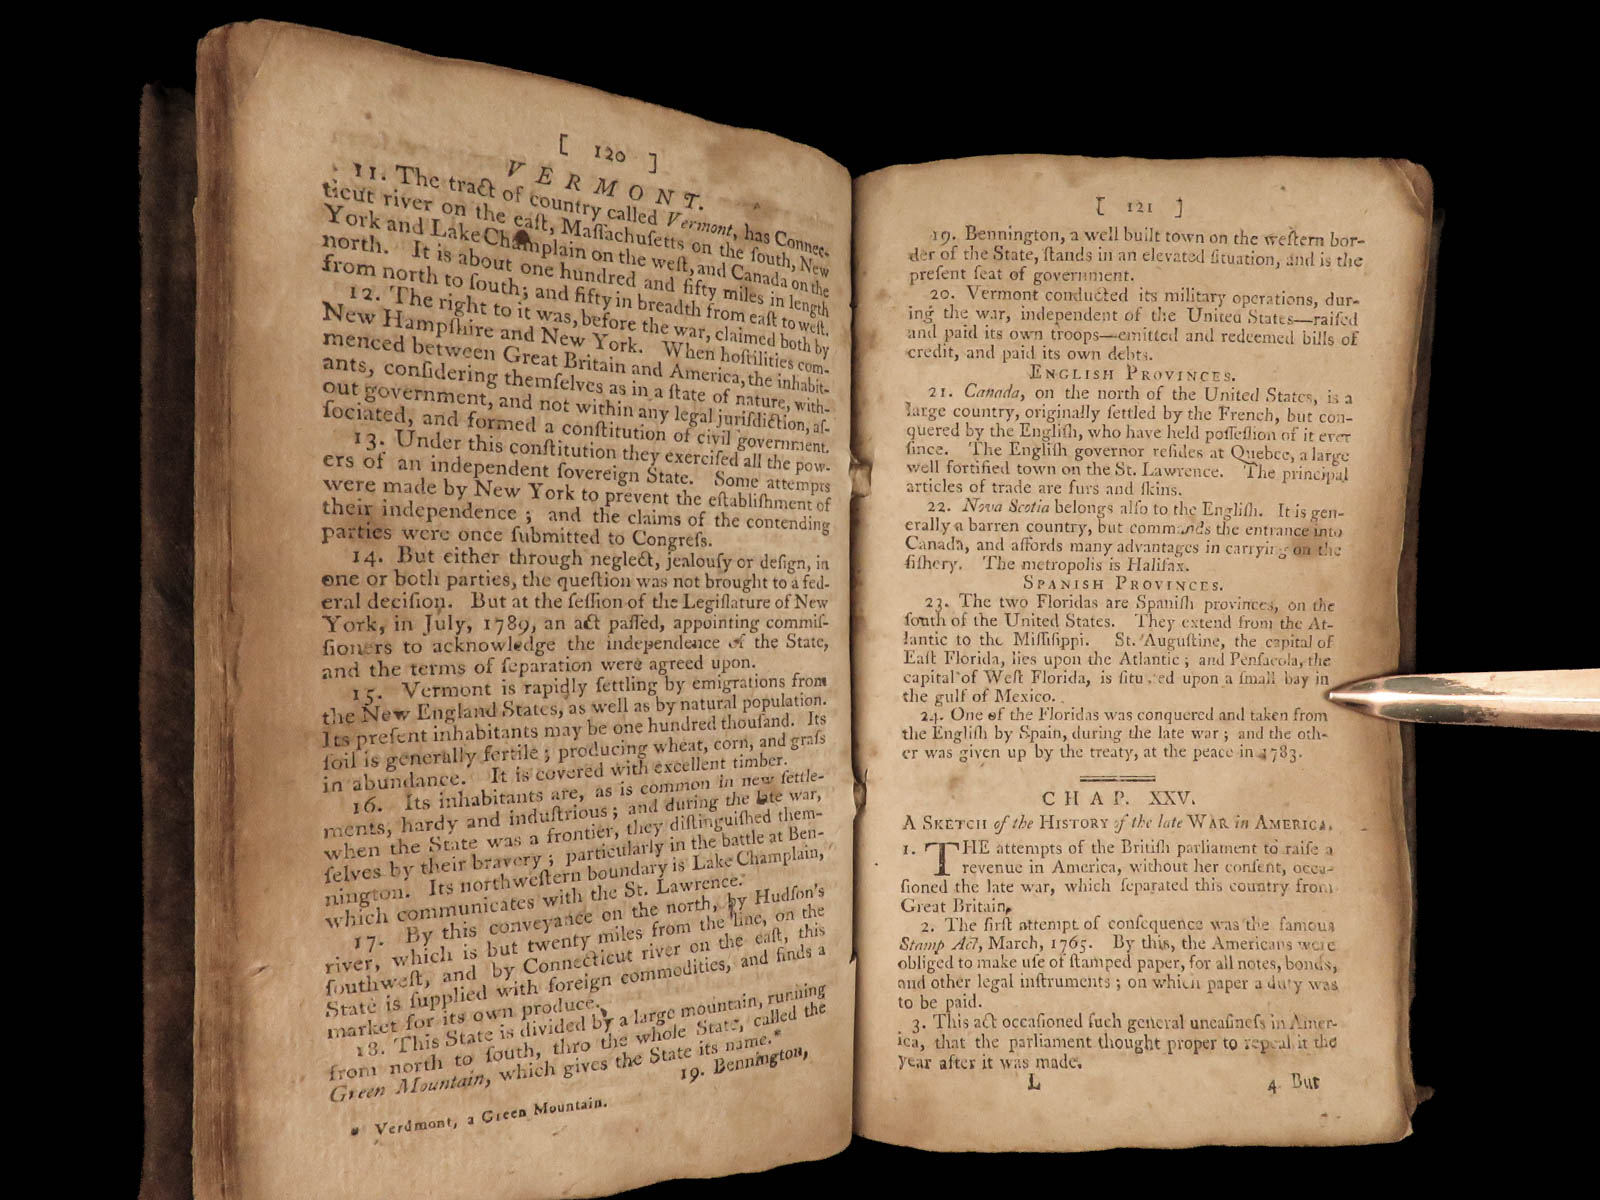 [ 120 ]
VERMONT.
11. The tract of country called Vermont, has Connec-
ticut river on the eaſt, Maſſachuſetts on the ſouth, New
York and Lake Champlain on the weſt, and Canada on the
north. It is about one hundred and fifty miles in length
from north to ſouth; and fifty in breadth from eaſt to weſt.
12. The right to it was, before the war, claimed both by
New Hampſhire and New York. When hoſtilities com-
menced between Great Britain and America, the inhabit-
ants, conſidering themſelves as in a ſtate of nature, with-
out government, and not within any legal juriſdiction, aſ-
ſociated, and formed a conſtitution of civil government.
13. Under this conſtitution they exerciſed all the pow-
ers of an independent ſovereign State. Some attempts
were made by New York to prevent the eſtabliſhment of
their independence ; and the claims of the contending
parties were once ſubmitted to Congreſs.
14. But either through neglect, jealouſy or deſign, in
one or both parties, the queſtion was not brought to a fed-
eral deciſion. But at the ſeſſion of the Legiſlature of New
York, in July, 1789, an act paſſed, appointing commiſ-
ſioners to acknowledge the independence of the State,
and the terms of ſeparation were agreed upon.
15. Vermont is rapidly ſettling by emigrations from
the New England States, as well as by natural population.
Its preſent inhabitants may be one hundred thouſand. Its
ſoil is generally fertile ; producing wheat, corn, and graſs
in abundance. It is covered with excellent timber.
16. Its inhabitants are, as is common in new ſettle-
ments, hardy and induſtrious ; and during the late war,
when the State was a frontier, they diſtinguiſhed them-
ſelves by their bravery ; particularly in the battle at Ben-
nington. Its northweſtern boundary is Lake Champlain,
which communicates with the St. Lawrence.
17. By this conveyance on the north, by Hudſon's
river, which is but twenty miles from the line, on the
ſouthweſt, and by Connecticut river on the eaſt, this
State is ſupplied with foreign commodities, and finds a
market for its own produce.
18. This State is divided by a large mountain, running
from north to ſouth, thro the whole State, called the
Green Mountain, which gives the State its name.*
19. Bennington,
* Verdmont, a Green Mountain.
[ 121 ]
19. Bennington, a well built town on the weſtern bor-
der of the State, ſtands in an elevated ſituation, and is the
preſent ſeat of government.
20. Vermont conducted its military operations, dur-
ing the war, independent of the United States—raiſed
and paid its own troops—emitted and redeemed bills of
credit, and paid its own debts.
ENGLISH PROVINCES.
21. Canada, on the north of the United States, is a
large country, originally ſettled by the French, but con-
quered by the Engliſh, who have held poſſeſſion of it ever
ſince. The Engliſh governor reſides at Quebec, a large
well fortified town on the St. Lawrence. The principal
articles of trade are furs and ſkins.
22. Nova Scotia belongs alſo to the Engliſh. It is gen-
erally a barren country, but commands the entrance into
Canada, and affords many advantages in carrying on the
fiſhery. The metropolis is Halifax.
SPANISH PROVINCES.
23. The two Floridas are Spaniſh provinces, on the
ſouth of the United States. They extend from the At-
lantic to the Miſſiſippi. St. Auguſtine, the capital of
Eaſt Florida, lies upon the Atlantic ; and Penſacola, the
capital of Weſt Florida, is ſituated upon a ſmall bay in
the gulf of Mexico.
24. One of the Floridas was conquered and taken from
the Engliſh by Spain, during the late war ; and the oth-
er was given up by the treaty, at the peace in 1783.
CHAP. XXV.
A SKETCH of the HISTORY of the late WAR in AMERICA.
1. THE attempts of the Britiſh parliament to raiſe a
revenue in America, without her conſent, occa-
ſioned the late war, which ſeparated this country from
Great Britain.
2. The firſt attempt of conſequence was the famous
Stamp Act, March, 1765. By this, the Americans were
obliged to make uſe of ſtamped paper, for all notes, bonds,
and other legal inſtruments ; on which paper a duty was
to be paid.
3. This act occaſioned ſuch general uneaſineſs in Amer-
ica, that the parliament thought proper to repeal it the
year after it was made.
L
4. But